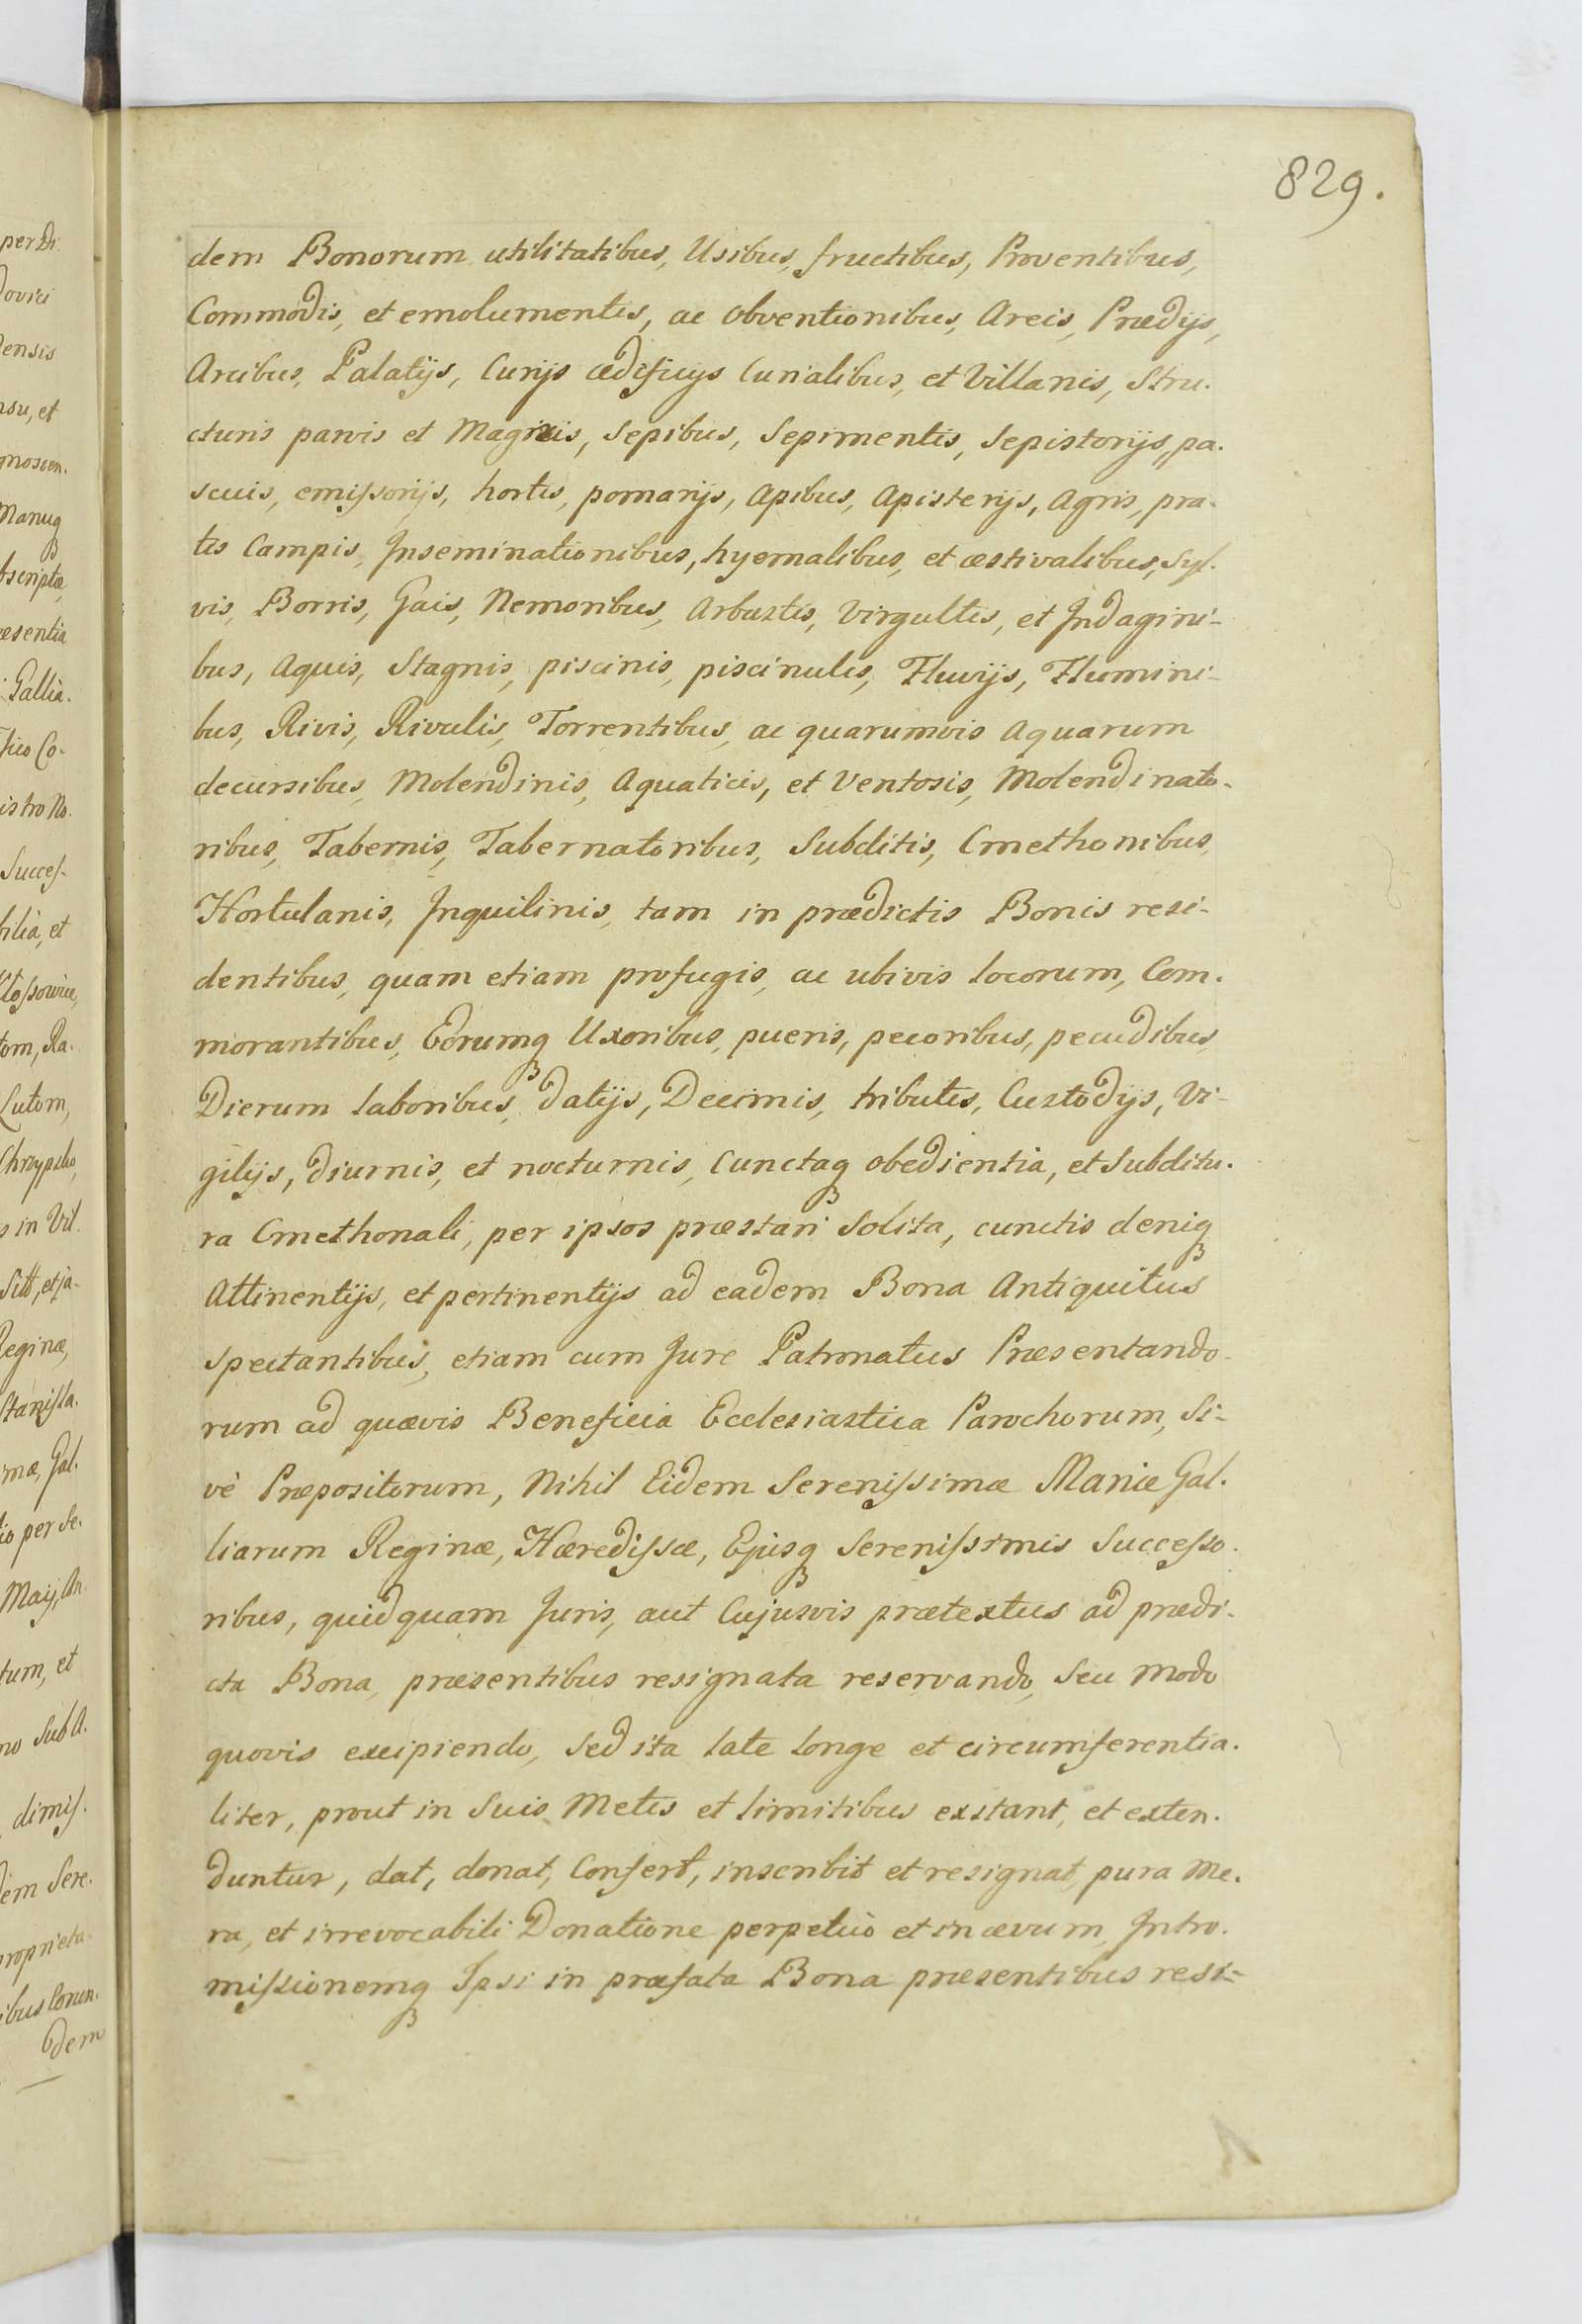 829.
dem Bonorum utilitatibus, Usibus, fructibus, Proventibus,
Commodis, et emolumentis, ac obventionibus, Areis, Prædijs,
Arcibus, Palatijs, Curijs ædificijs Curialibus, et Villanis, Stru.
cturis parvis et Magnis, Sepibus, Sepimentis, Sepistorijs, pa.
scuis, emissorijs, hortis, pomarijs, Apibus, Apisterijs, Agris, pra.
tis Campis, Inseminationibus, hyemalibus, et æstivalibus, Syl.
vis, Borris, Gais, Nemoribus, Arbustis, Virgultis, et Indagini-
bus, Aquis, Stagnis, piscinis, piscinulis, Fluvijs, Flumini-
bus, Rivis, Rivulis, Torrentibus, ac quarumvis Aquarum
decursibus, Molendinis, Aquaticis, et Ventosis, Molendinato-
ribus, Tabernis, Tabernatoribus, Subditis, Cmethonibus,
Hortulanis, Inquilinis, tam in prædictis Bonis resi-
dentibus, quam etiam profugis, ac ubivis locorum, Com.
morantibus, Eorumq Uxoribus, pueris, pecoribus, pecudibus,
Dierum laboribus, datijs, Decimis, tributis, Custodijs, Vi-
gilijs, diurnis, et nocturnis, Cunctaq obedientia, et Subditu.
ra Cmethonali, per ipsos præstari Solita, cunctis deniq
Attinentijs, et pertinentijs ad eadem Bona Antiquitus
Spectantibus, etiam cum Jure Patronatus Præsentando-
rum ad quævis Beneficia Ecclesiastica Parochorum, Si-
vè Præpositorum, Nihil Eidem Serenissimæ Mariæ Gal.
liarum Reginæ, Hæredissæ, Ejusq Serenissimis Successo.
ribus, quidquam Juris, aut Cujusvis prætextus ad prædi-
cta Bona, præsentibus resignata reservando, Seu modo
quovis excipiendo, Sed ita late longe et circumferentia.
liter, prout in Suis Metis et limitibus exstant, et exten.
duntur, dat, donat, Confert, inscribit et resignat, pura Me.
ra, et irrevocabili Donatione perpetuò et in ævum, Intro.
missionemq Ipsi in præfata Bona præsentibus resi-